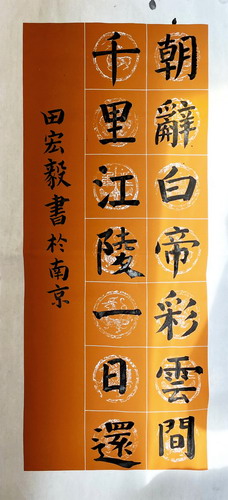 朝辭白帝彩雲間
千里江陵一日還
田宏毅書於南京